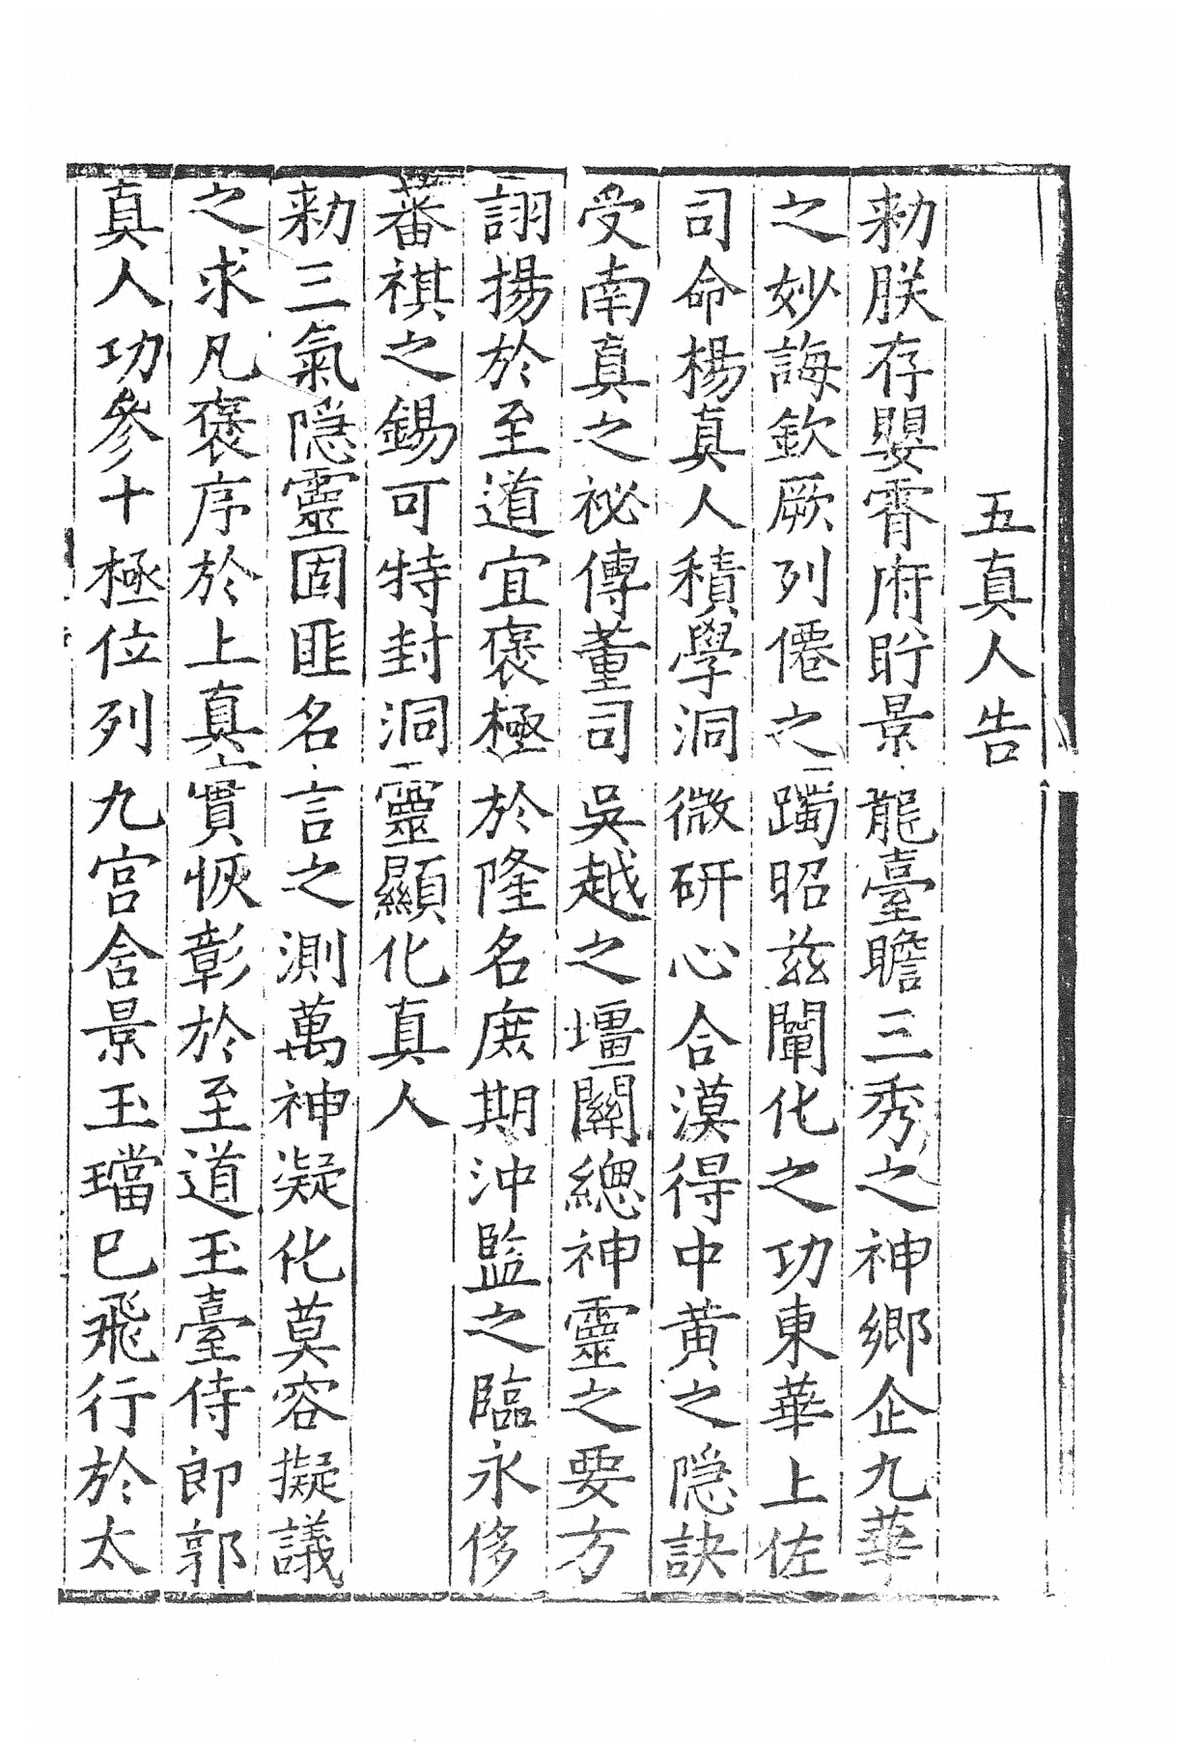 五真人告
勑朕存嬰霄府盻景龍臺瞻三秀之神鄉企九華
之妙誨欽厥列僊之躅昭茲闡化之功東華上佐
司命楊真人積學洞微研心合漠得中黃之隱訣
受南真之祕傳董司吳越之壃關總神靈之要方
詡揚於至道宜褒極於隆名庶期沖監之臨永侈
蕃祺之錫可特封洞靈顯化真人
勑三氣隱靈固匪名言之測萬神凝化莫容擬議
之求凡褒序於上真實恢彰於至道玉臺侍郎郭
真人功參十極位列九宮含景玉璫巳飛行於太